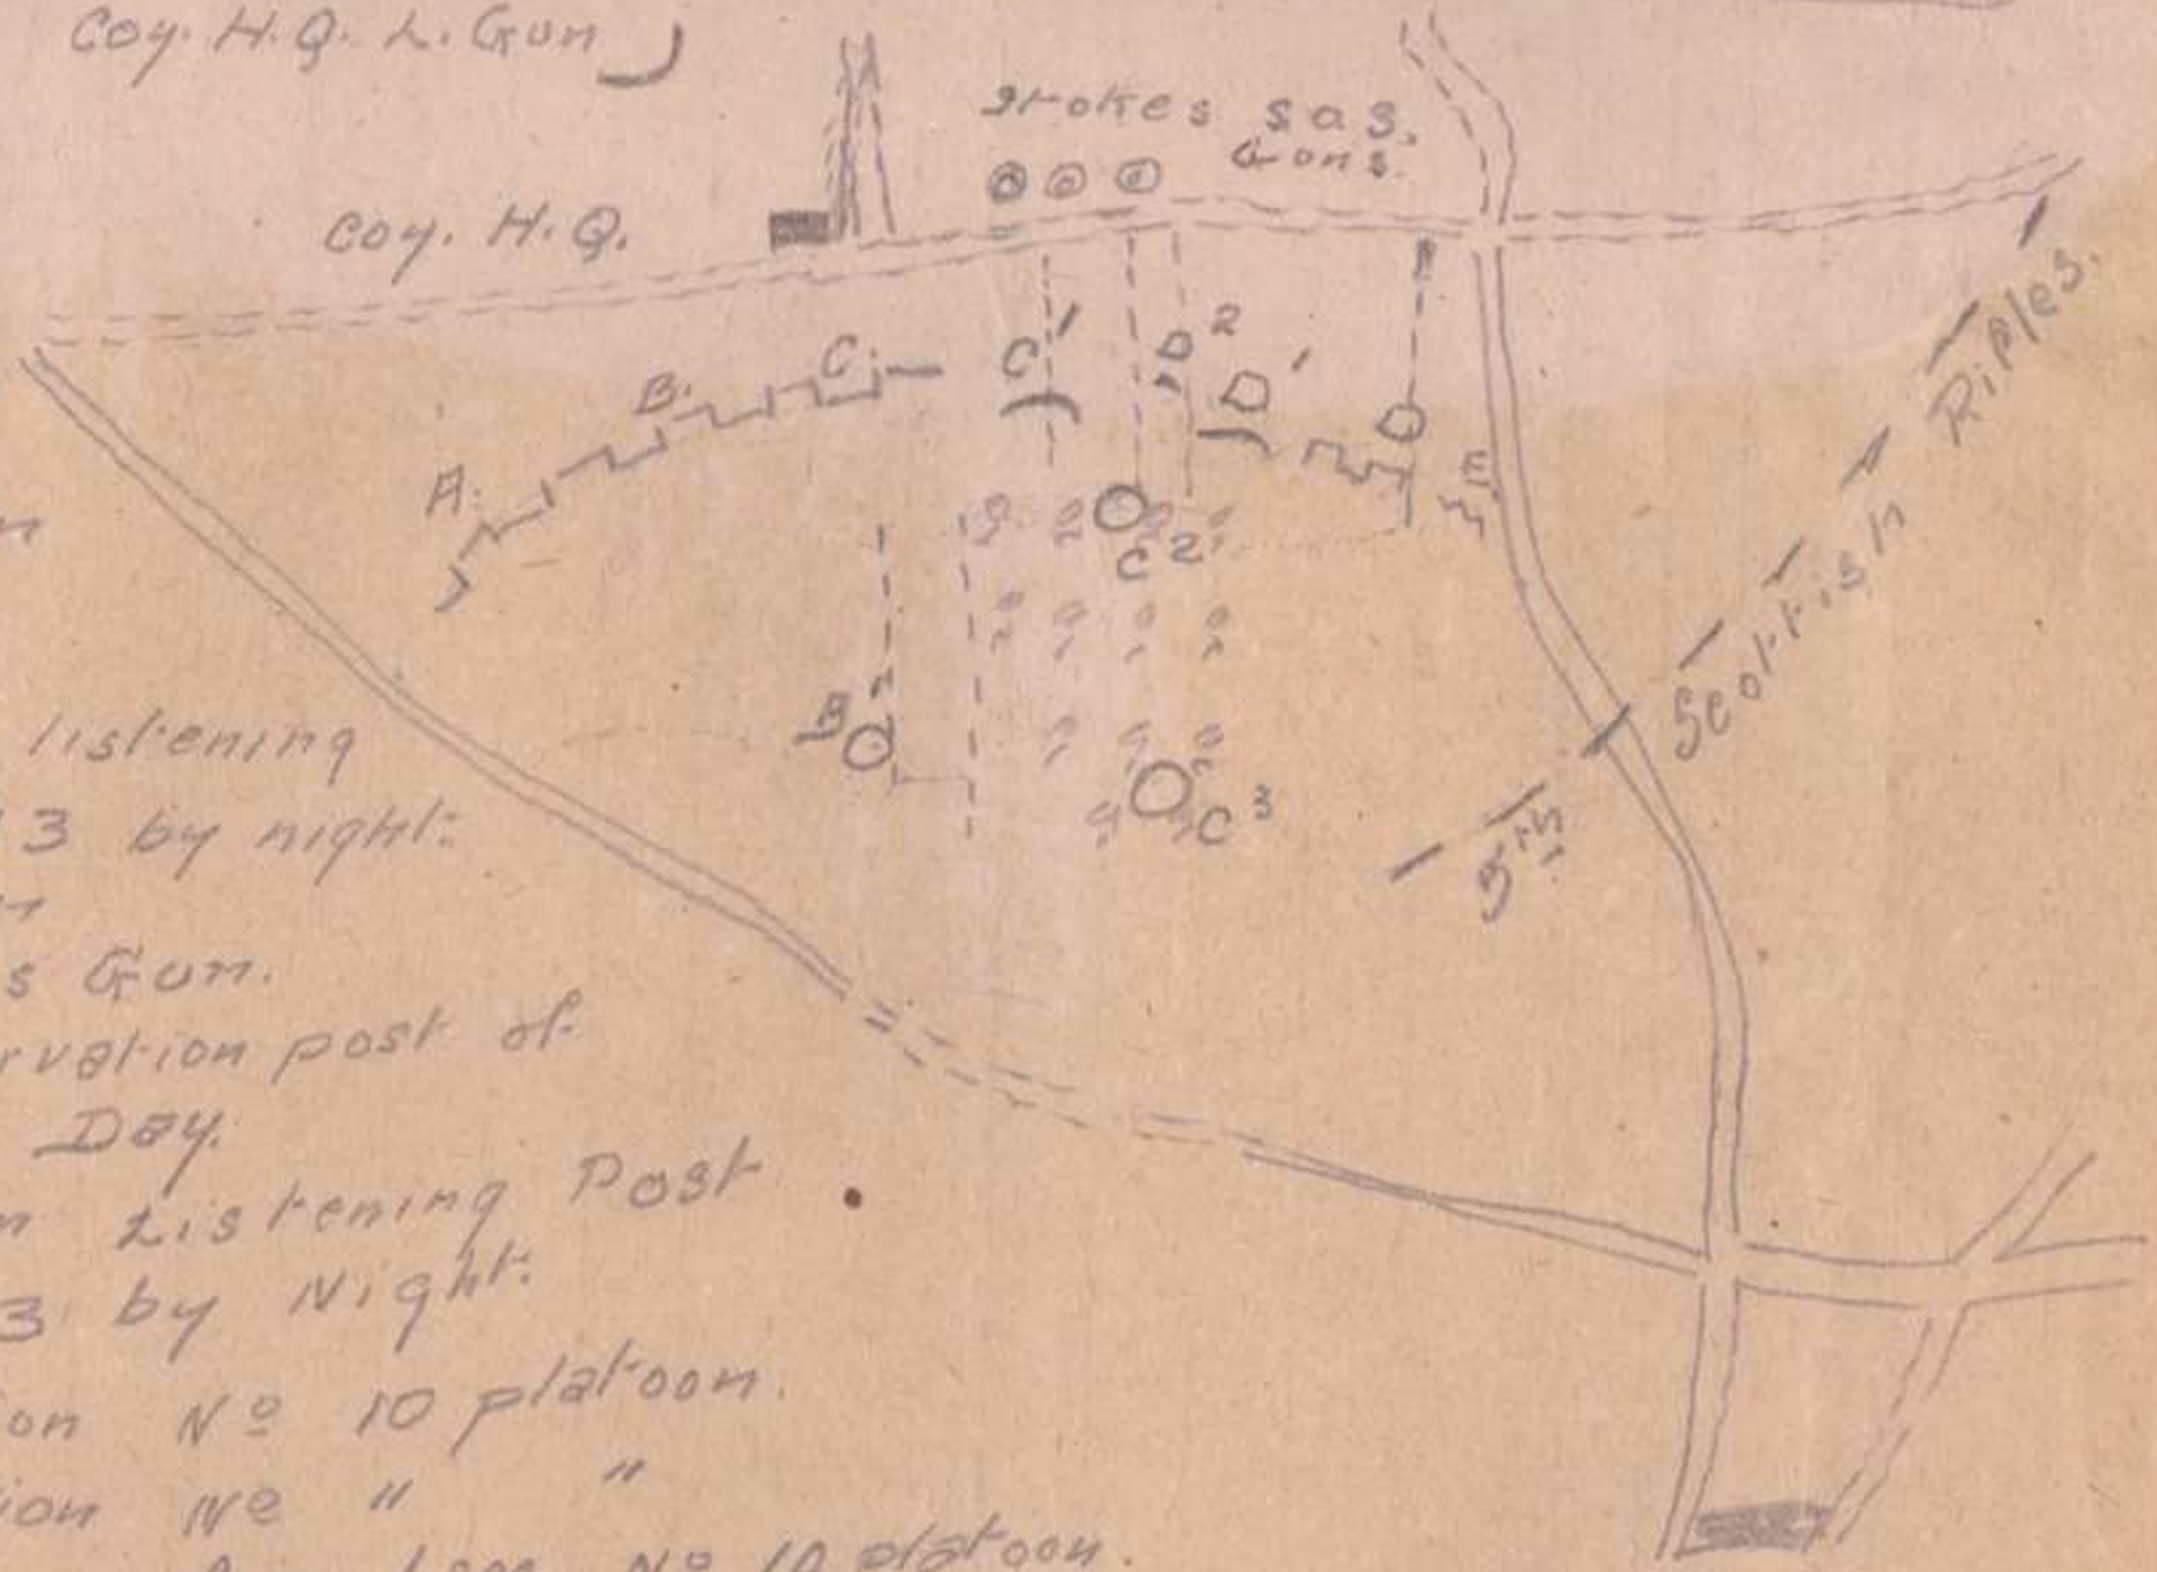 Coy. H.Q. L. Gun
Stokes
Guns.
Coy. H.Q.
A.
B.
C.
C'
D²
D'
D
E
C²
B'
C³
5th Scottish Rifles.
listening
3 by night.
s Gun.
rvation post of
Day.
Listening Post
3 by Night.
on Nº 10 platoon.
ion Nº " "
Nº 10 platoon.